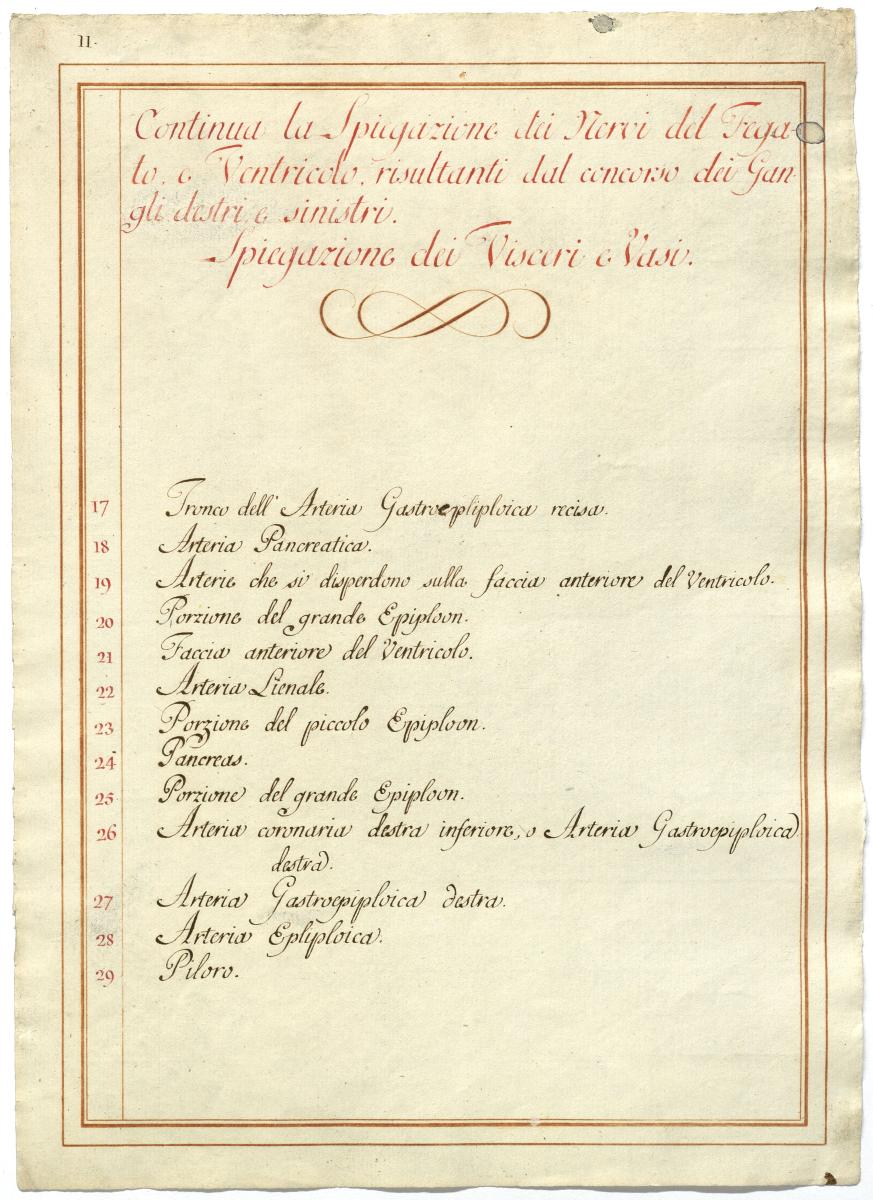 11.
Continua la Spiegazione dei Nervi del Fega-
to, e Ventricolo, risultanti dal concorso dei Gan-
gli destri e sinistri.
Spiegazione dei Visceri e Vasi.
17 Tronco dell' Arteria Gastroepliploica recisa.
18 Arteria Pancreatica.
19 Arterie che si disperdono sulla faccia anteriore del Ventricolo.
20 Porzione del grande Epiploon.
21 Faccia anteriore del Ventricolo.
22 Arteria Lienale.
23 Porzione del piccolo Epiploon.
24 Pancreas.
25 Porzione del grande Epiploon.
26 Arteria coronaria destra inferiore, o Arteria Gastroepiploica
destra.
27 Arteria Gastroepiploica destra.
28 Arteria Epliploica.
29 Piloro.